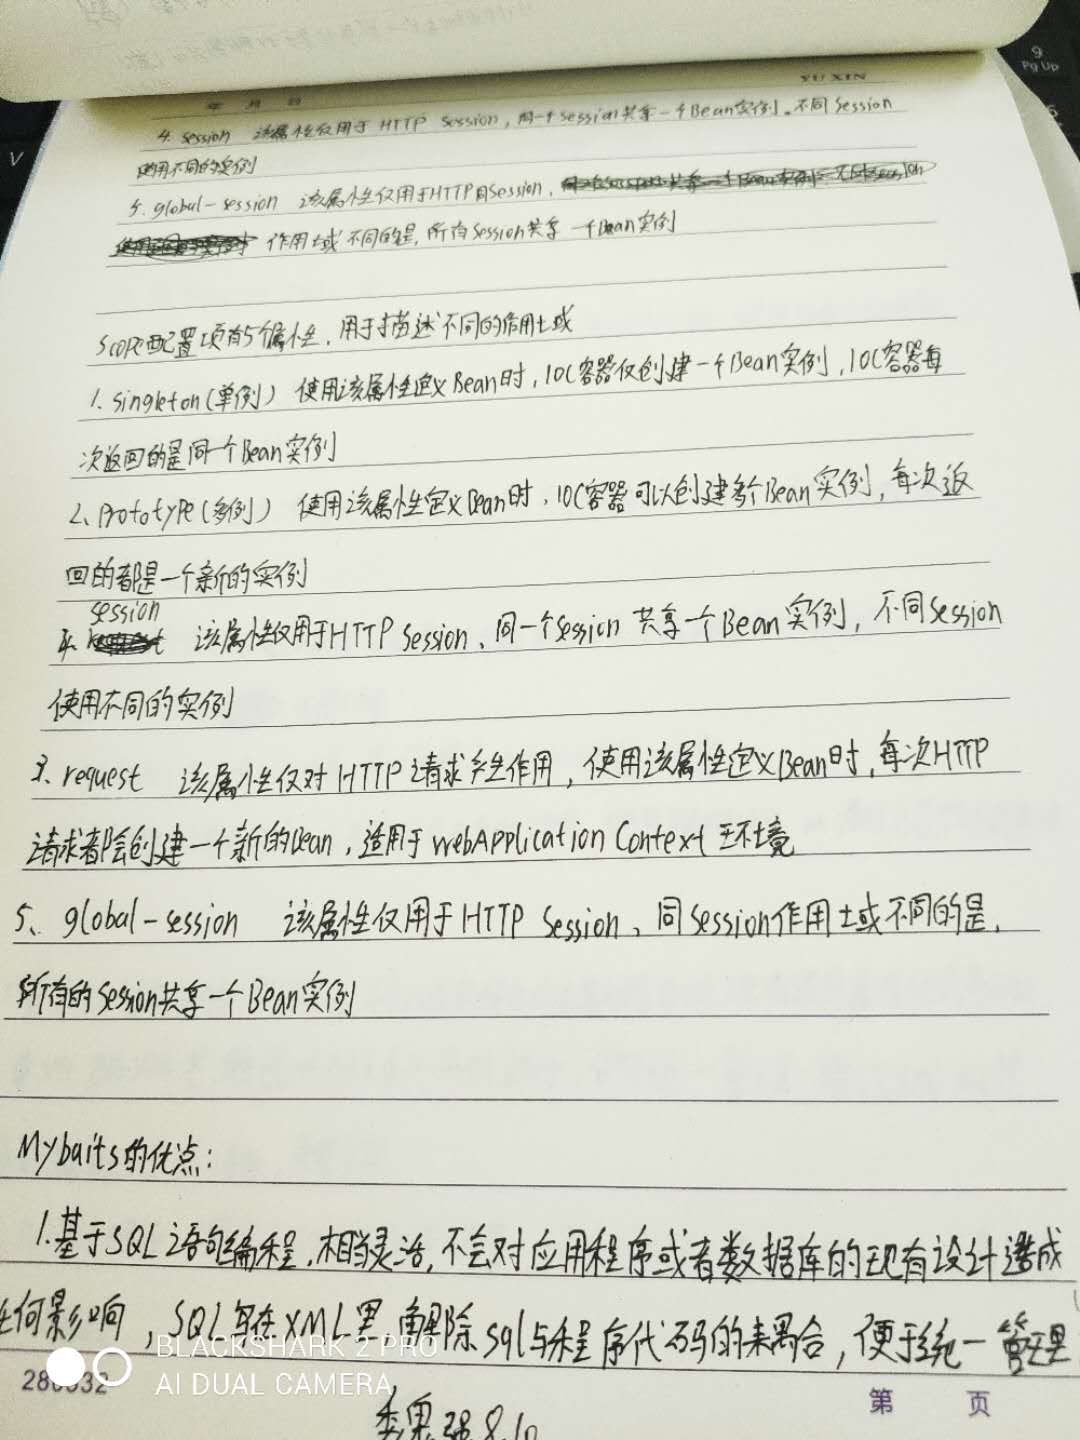 年 月 日
YU XIN
4. session 该属性仅用于 HTTP Session，同一个session共享一个Bean实例。不同Session
使用不同的实例
5. global-session 该属性仅用于HTTP Session，
作用域不同的是，所有Session共享一个Bean实例
Scope配置项有5个属性，用于描述不同的作用域
1. singleton(单例) 使用该属性定义Bean时，IOC容器仅创建一个Bean实例，IOC容器每
次返回的是同一个Bean实例
2、prototype(多例) 使用该属性定义Bean时，IOC容器可以创建多个Bean实例，每次返
回的都是一个新的实例
session
4. 该属性仅用于HTTP Session、同一个Session 共享一个Bean实例，不同Session
使用不同的实例
3. request 该属性仅对HTTP请求产生作用，使用该属性定义Bean时，每次HTTP
请求都会创建一个新的Bean，适用于webApplication Context 环境
5、global-session 该属性仅用于HTTP Session、同Session作用域不同的是，
所有的Session共享一个Bean实例
Mybaits的优点：
1.基于SQL语句编程，相当灵活，不会对应用程序或者数据库的现有设计造成
任何影响，SQL写在XML里，解除sql与程序代码的耦合，便于统一管理
BLACKSHARK 2 PRO
AI DUAL CAMERA
第 页
9
Pg Up
V